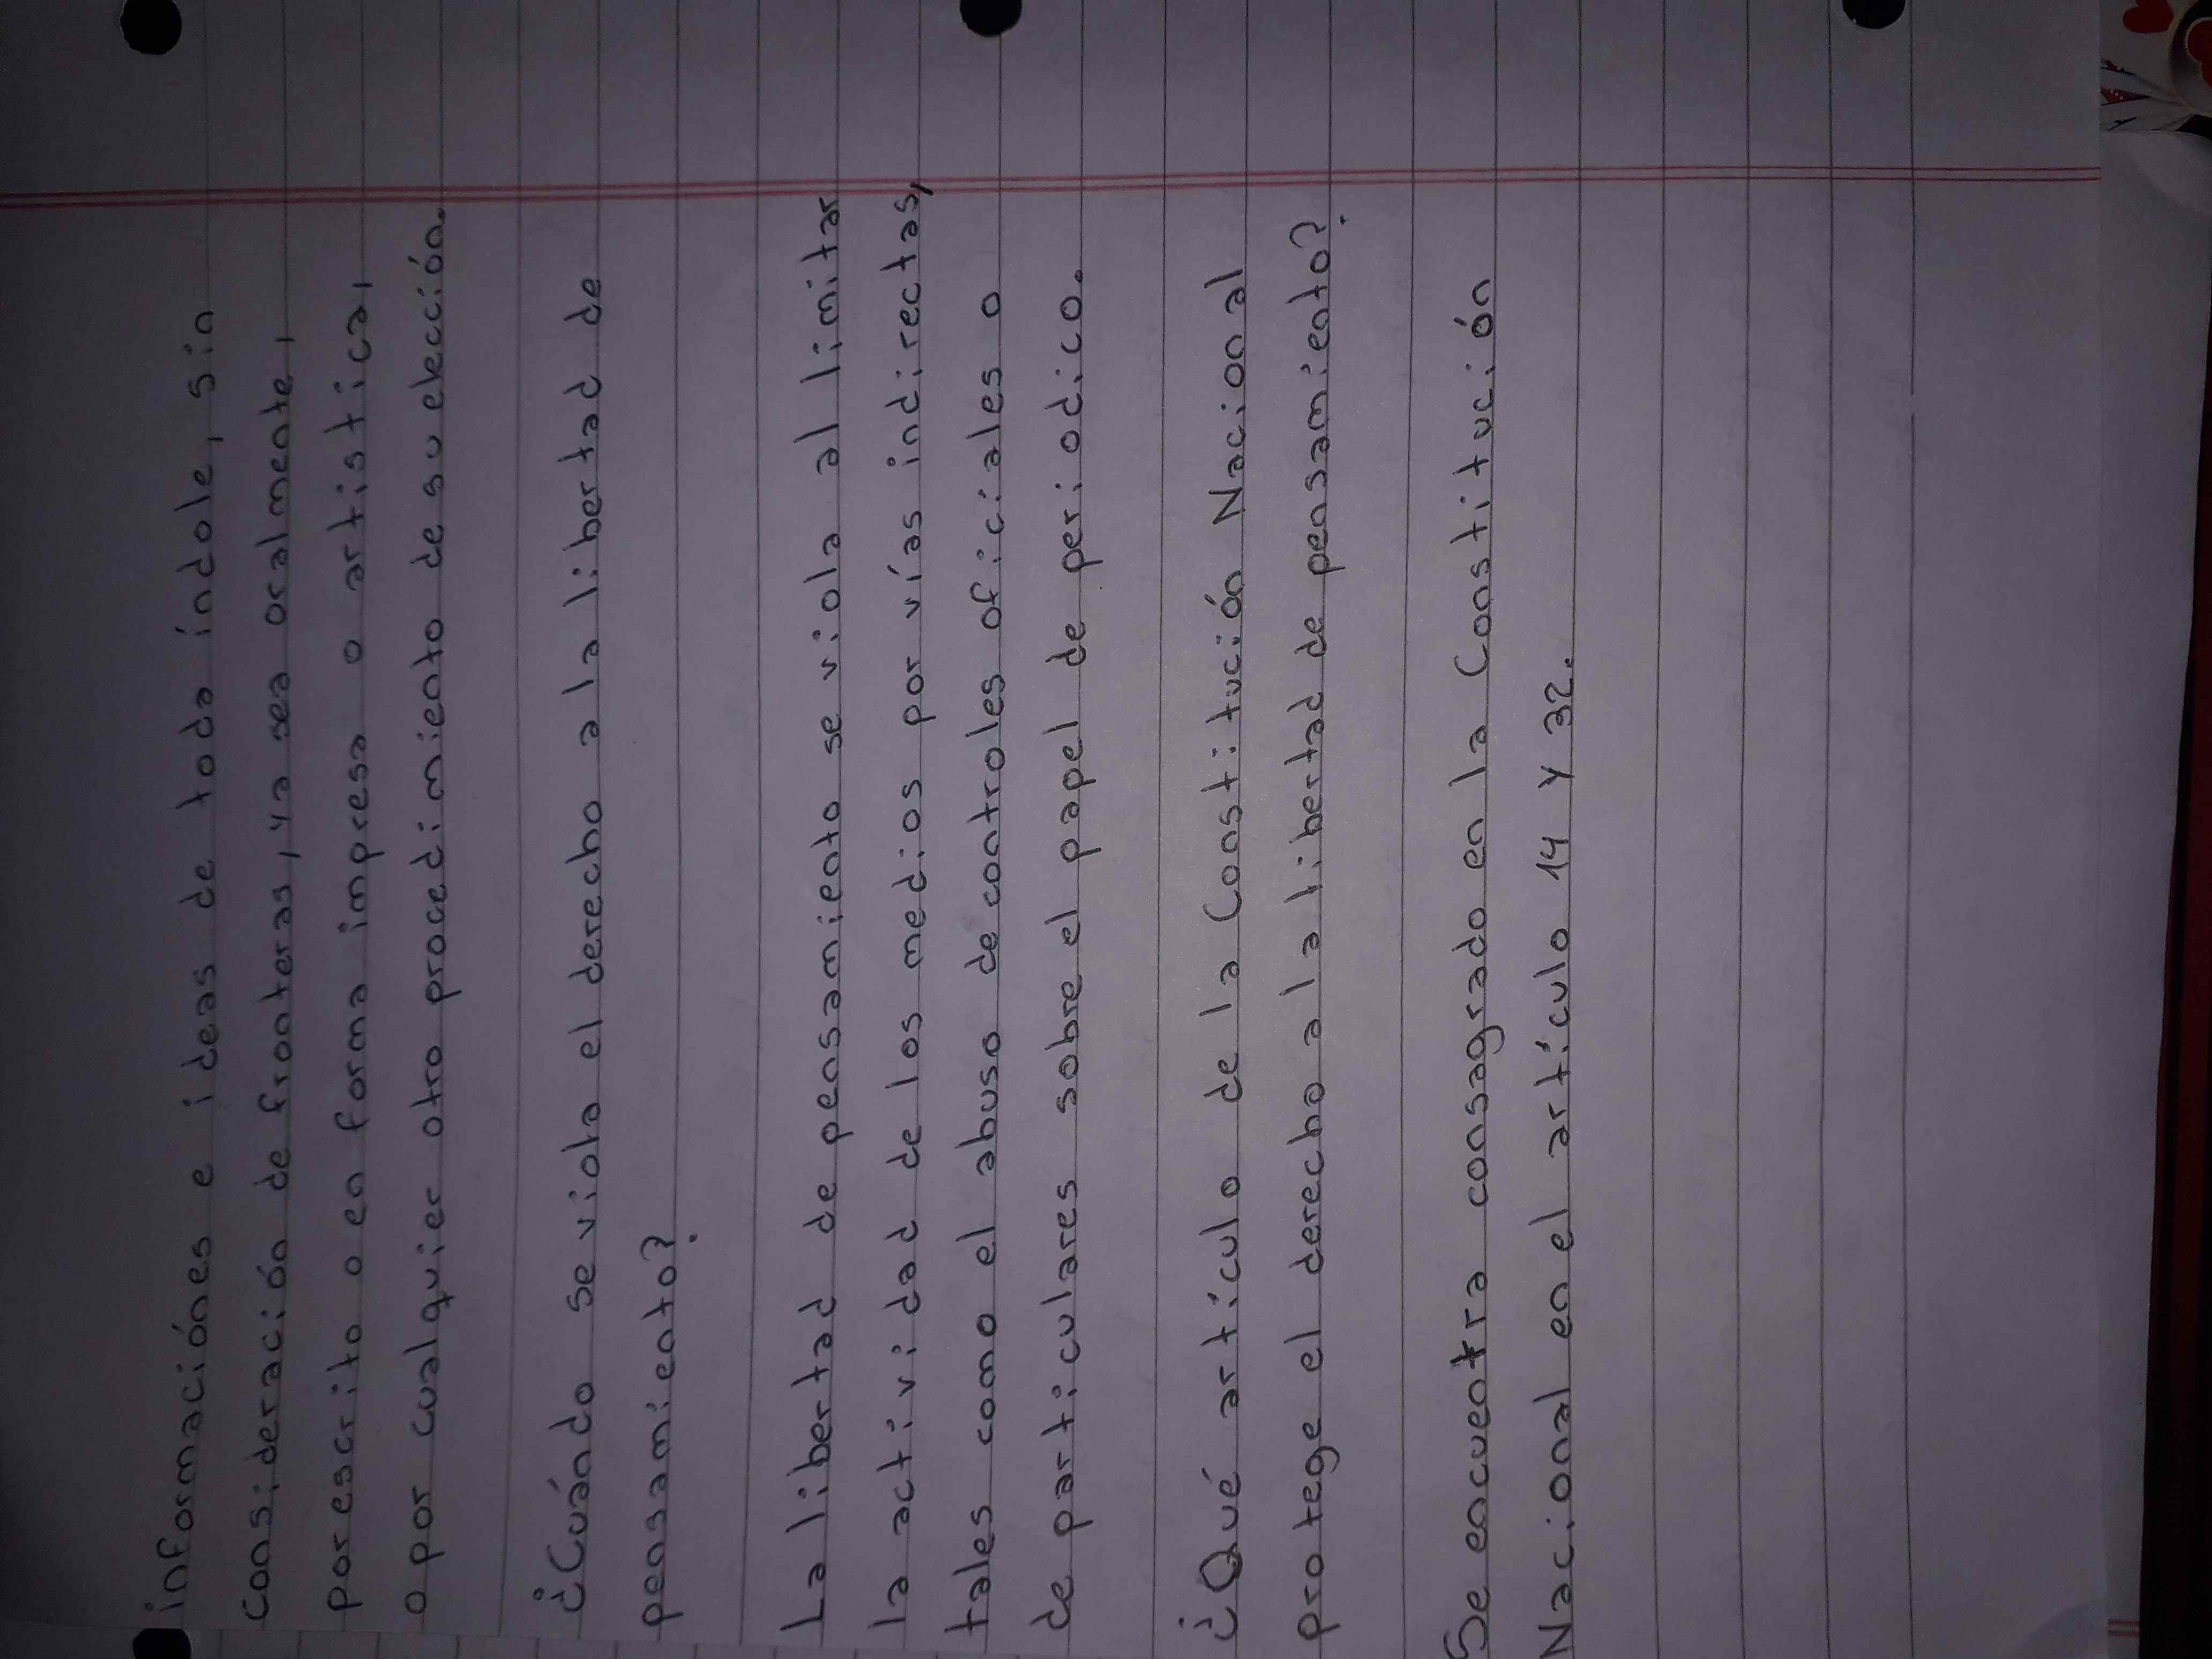 informaciónes e ideas de toda índole, sin
consideración de fronteras, ya sea oralmente,
por escrito o en forma impresa o artistica,
o por cualquier otro procedimiento de su elección.
¿Cuándo se viola el derecho a la libertad de
pensamiento?
La libertad de pensamiento se viola al limitar
la actividad de los medios por vías indirectas,
tales como el abuso de controles oficiales o
de particulares sobre el papel de periodico.
¿Qué artículo de la Constitución Nacional
protege el derecho a la libertad de pensamiento?
Se encuentra consagrado en la Constitución
Nacional en el artículo 14 y 32.